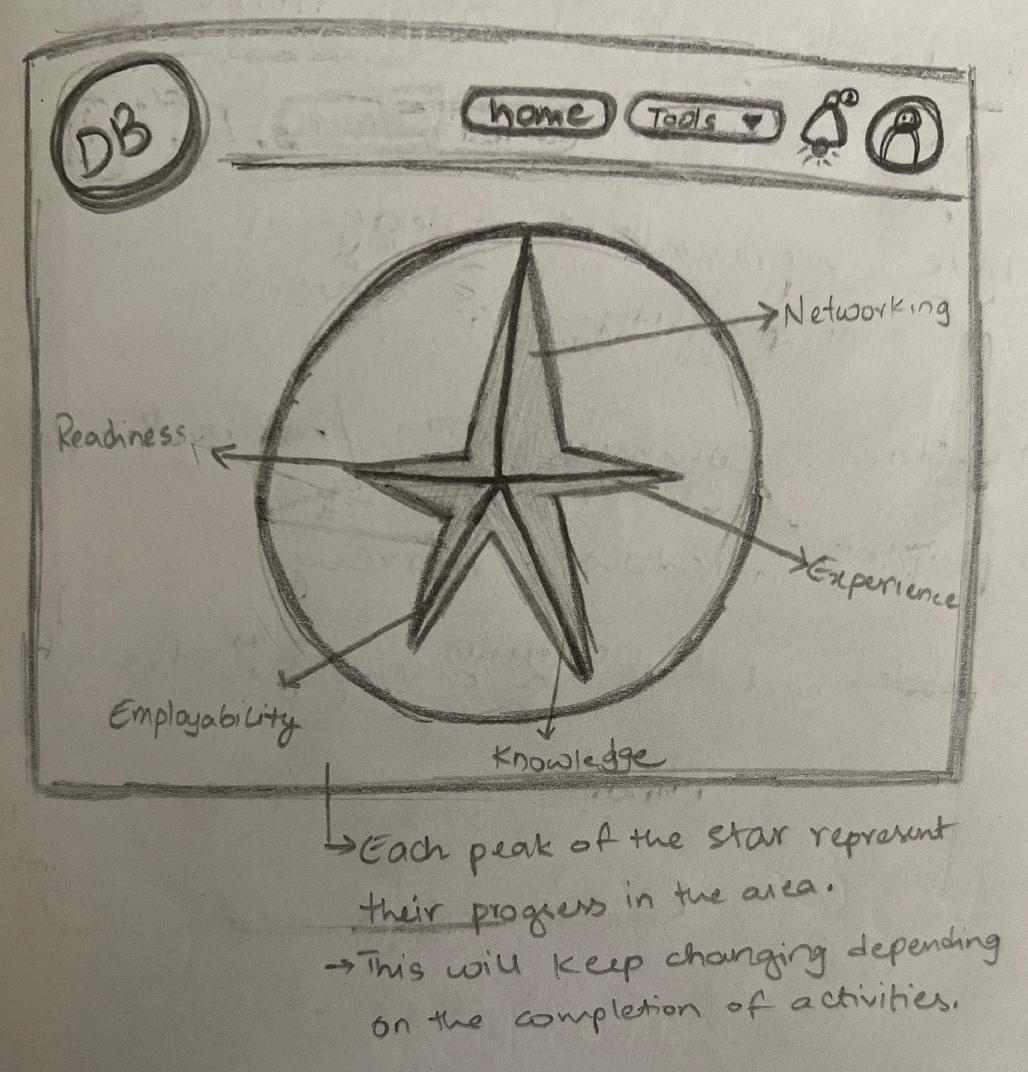 DB
home
Tools
2
Networking
Readiness
Experience
Employability
Knowledge
Each peak of the star represent
their progress in the area.
→ This will keep changing depending
on the completion of activities.